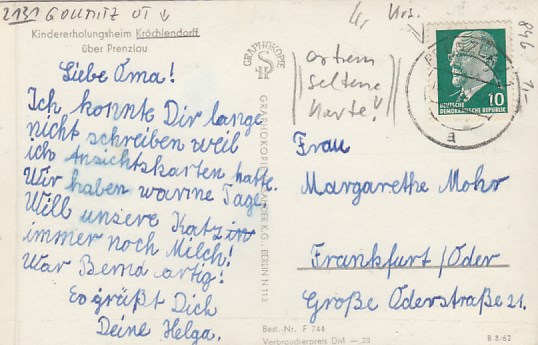 2131 GOLLMITZ OT ↓
Kindererholungsheim Kröchlendorff
über Prenzlau
Liebe Oma!
Ich konnte Dir lange
nicht schreiben weil
ich Ansichtskarten hatte.
Wir haben warme Tage.
Will unsere Katz
immer noch Milch!
War Bernd artig!
Es grüßt Dich
Deine Helga.
GRAPHOKOPIE
BERLIN N 113
extrem
seltene
Karte!
846
DEUTSCHE
DEMOKRATISCHE REPUBLIK
10
a
Frau
Margarethe Mohr
Frankfurt/Oder
Große Oderstraße 21.
Best.-Nr. F 744
Verbraucherpreis DM —.20
B 8/62